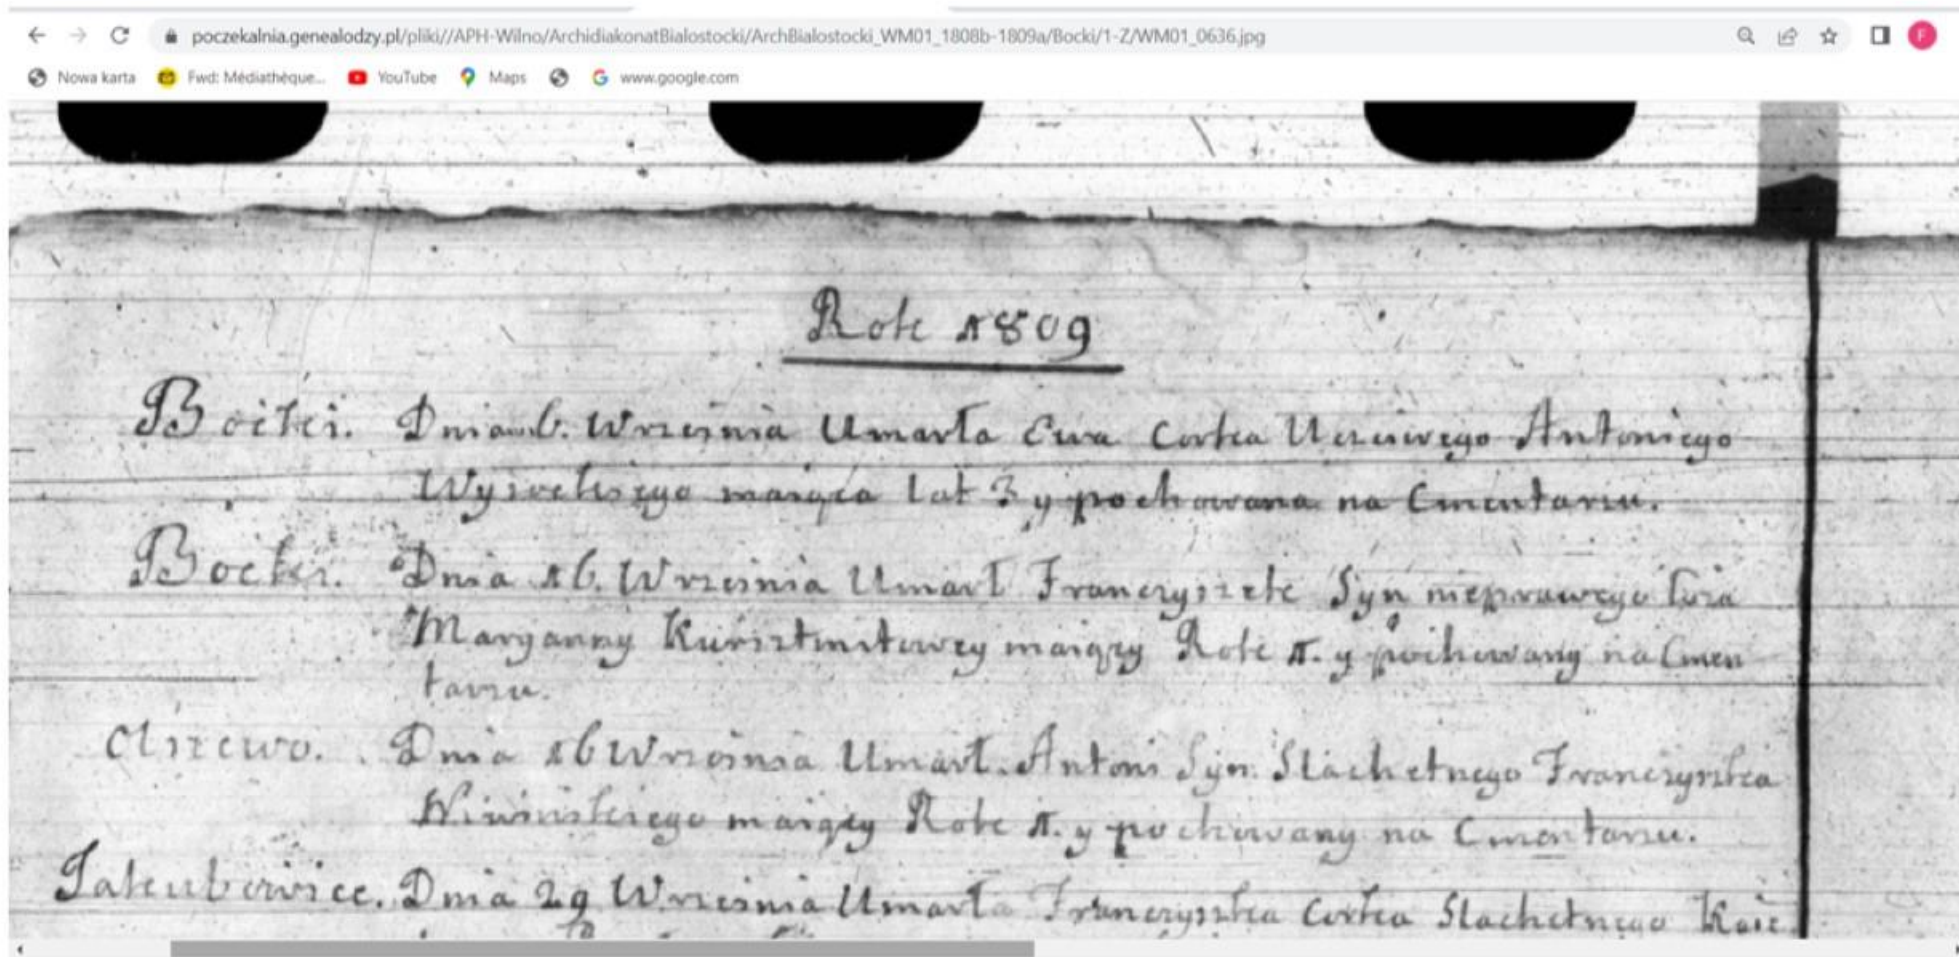 poczekalnia.genealodzy.pl/pliki//APH-Wilno/ArchidiakonatBialostocki/ArchBialostocki_WM01_1808b-1809a/Bocki/1-Z/WM01_0636.jpg
F
Nowa karta Fwd: Médiathèque... YouTube Maps www.google.com
Rok 1809
Boćki. Dnia 6. Wrzesnia Umarła Ewa Corka Uczciwego Antoniego
Wysockiego maiąca lat 3 y pochowana na Cmentarzu.
Boćki. Dnia 16. Wrzesnia Umarł Franczyszek Syn nieprawego łoza
Maryanny maiący Rok 1. y pochowany na Cmen
tarzu.
Dnia 16 Wrzesnia Umarł Antoni Syn Slachetnego Franczyszka
maiący Rok 1. y pochowany na Cmentarzu.
Jakubowice. Dnia 29 Wrzesnia Umarła Franczyszka Corka Slachetnego